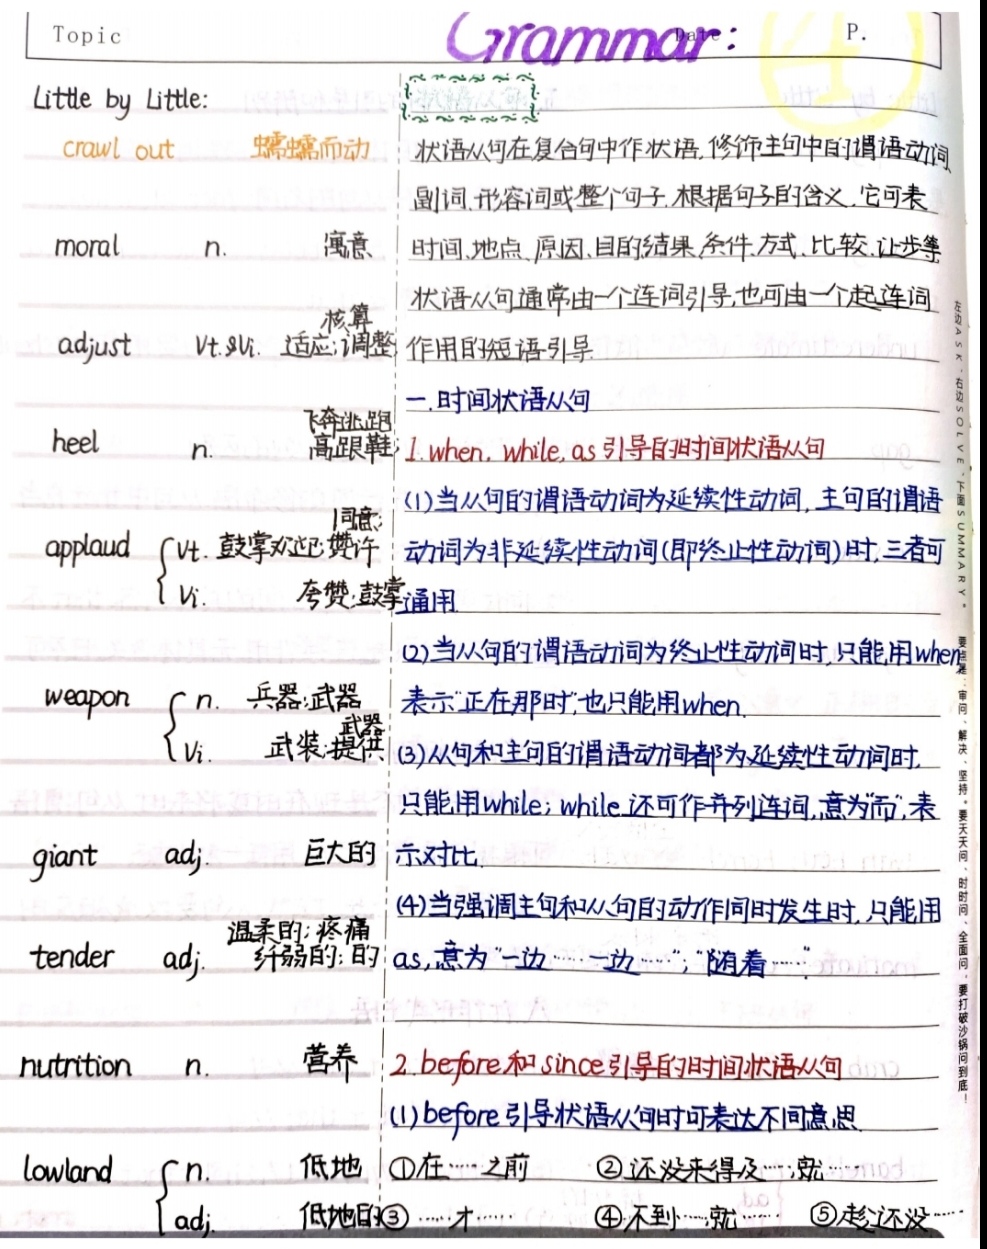 Topic
Grammar:
Date
P.
4
Little by Little:
crawl out 蠕蠕而动
moral n. 寓意
核算
adjust vt.&vi. 适应;调整
飞奔;逃跑
heel n. 高跟鞋;
同意;
applaud vt. 鼓掌欢迎;赞许
vi. 夸赞;鼓掌
weapon n. 兵器;武器
武器
vi. 武装;提供
giant adj. 巨大的
温柔的;疼痛
tender adj. 纤弱的;的
nutrition n. 营养
lowland n. 低地
adj. 低地的
状语从句在复合句中作状语,修饰主句中的谓语动词、
副词、形容词或整个句子.根据句子的含义,它可表
时间、地点、原因、目的、结果、条件、方式、比较、让步等
状语从句通常由一个连词引导,也可由一个起连词
作用的短语引导.
一.时间状语从句
1. when, while, as 引导的时间状语从句
(1)当从句的谓语动词为延续性动词, 主句的谓语
动词为非延续性动词(即终止性动词)时,三者可
通用.
(2)当从句的谓语动词为终止性动词时,只能用when
表示“正在那时”,也只能用when.
(3)从句和主句的谓语动词都为延续性动词时,
只能用while; while还可作并列连词,意为“而”,表
示对比.
(4)当强调主句和从句的动作同时发生时,只能用
as,意为“一边……一边……”;“随着……”.
2. before和since引导的时间状语从句
(1)before引导状语从句时可表达不同意思.
①在……之前 ②还没来得及…就……
③……才…… ④不到……就…… ⑤趁还没……
左边ASK,右边SOLVE,下面SUMMARY。